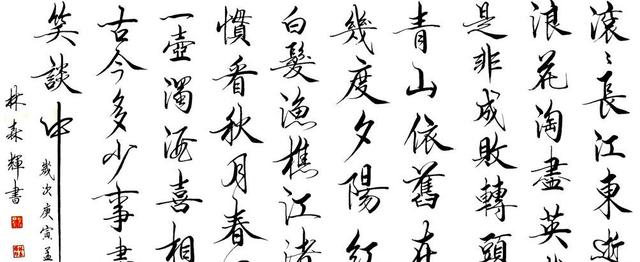 滚〻長江東逝
浪花淘盡英
是非成敗轉頭
青山依舊在
幾度夕陽紅
白髮漁樵江渚
慣看秋月春
一壺濁酒喜相
古今多少事
笑談中
歲次庚寅孟
林森輝書